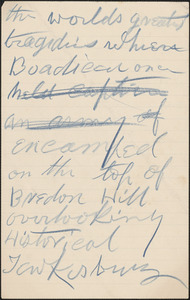 the worlds greatest
tragedies where
Boadicea once
held captive
an army of
encamped
on the top of
Bredon Hill
overlooking
Historical
Tewkesbury